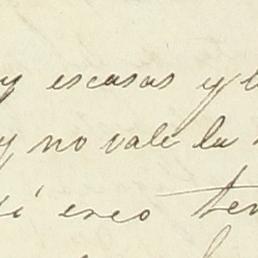 y escasas y l
y no vale la
sí creo ten